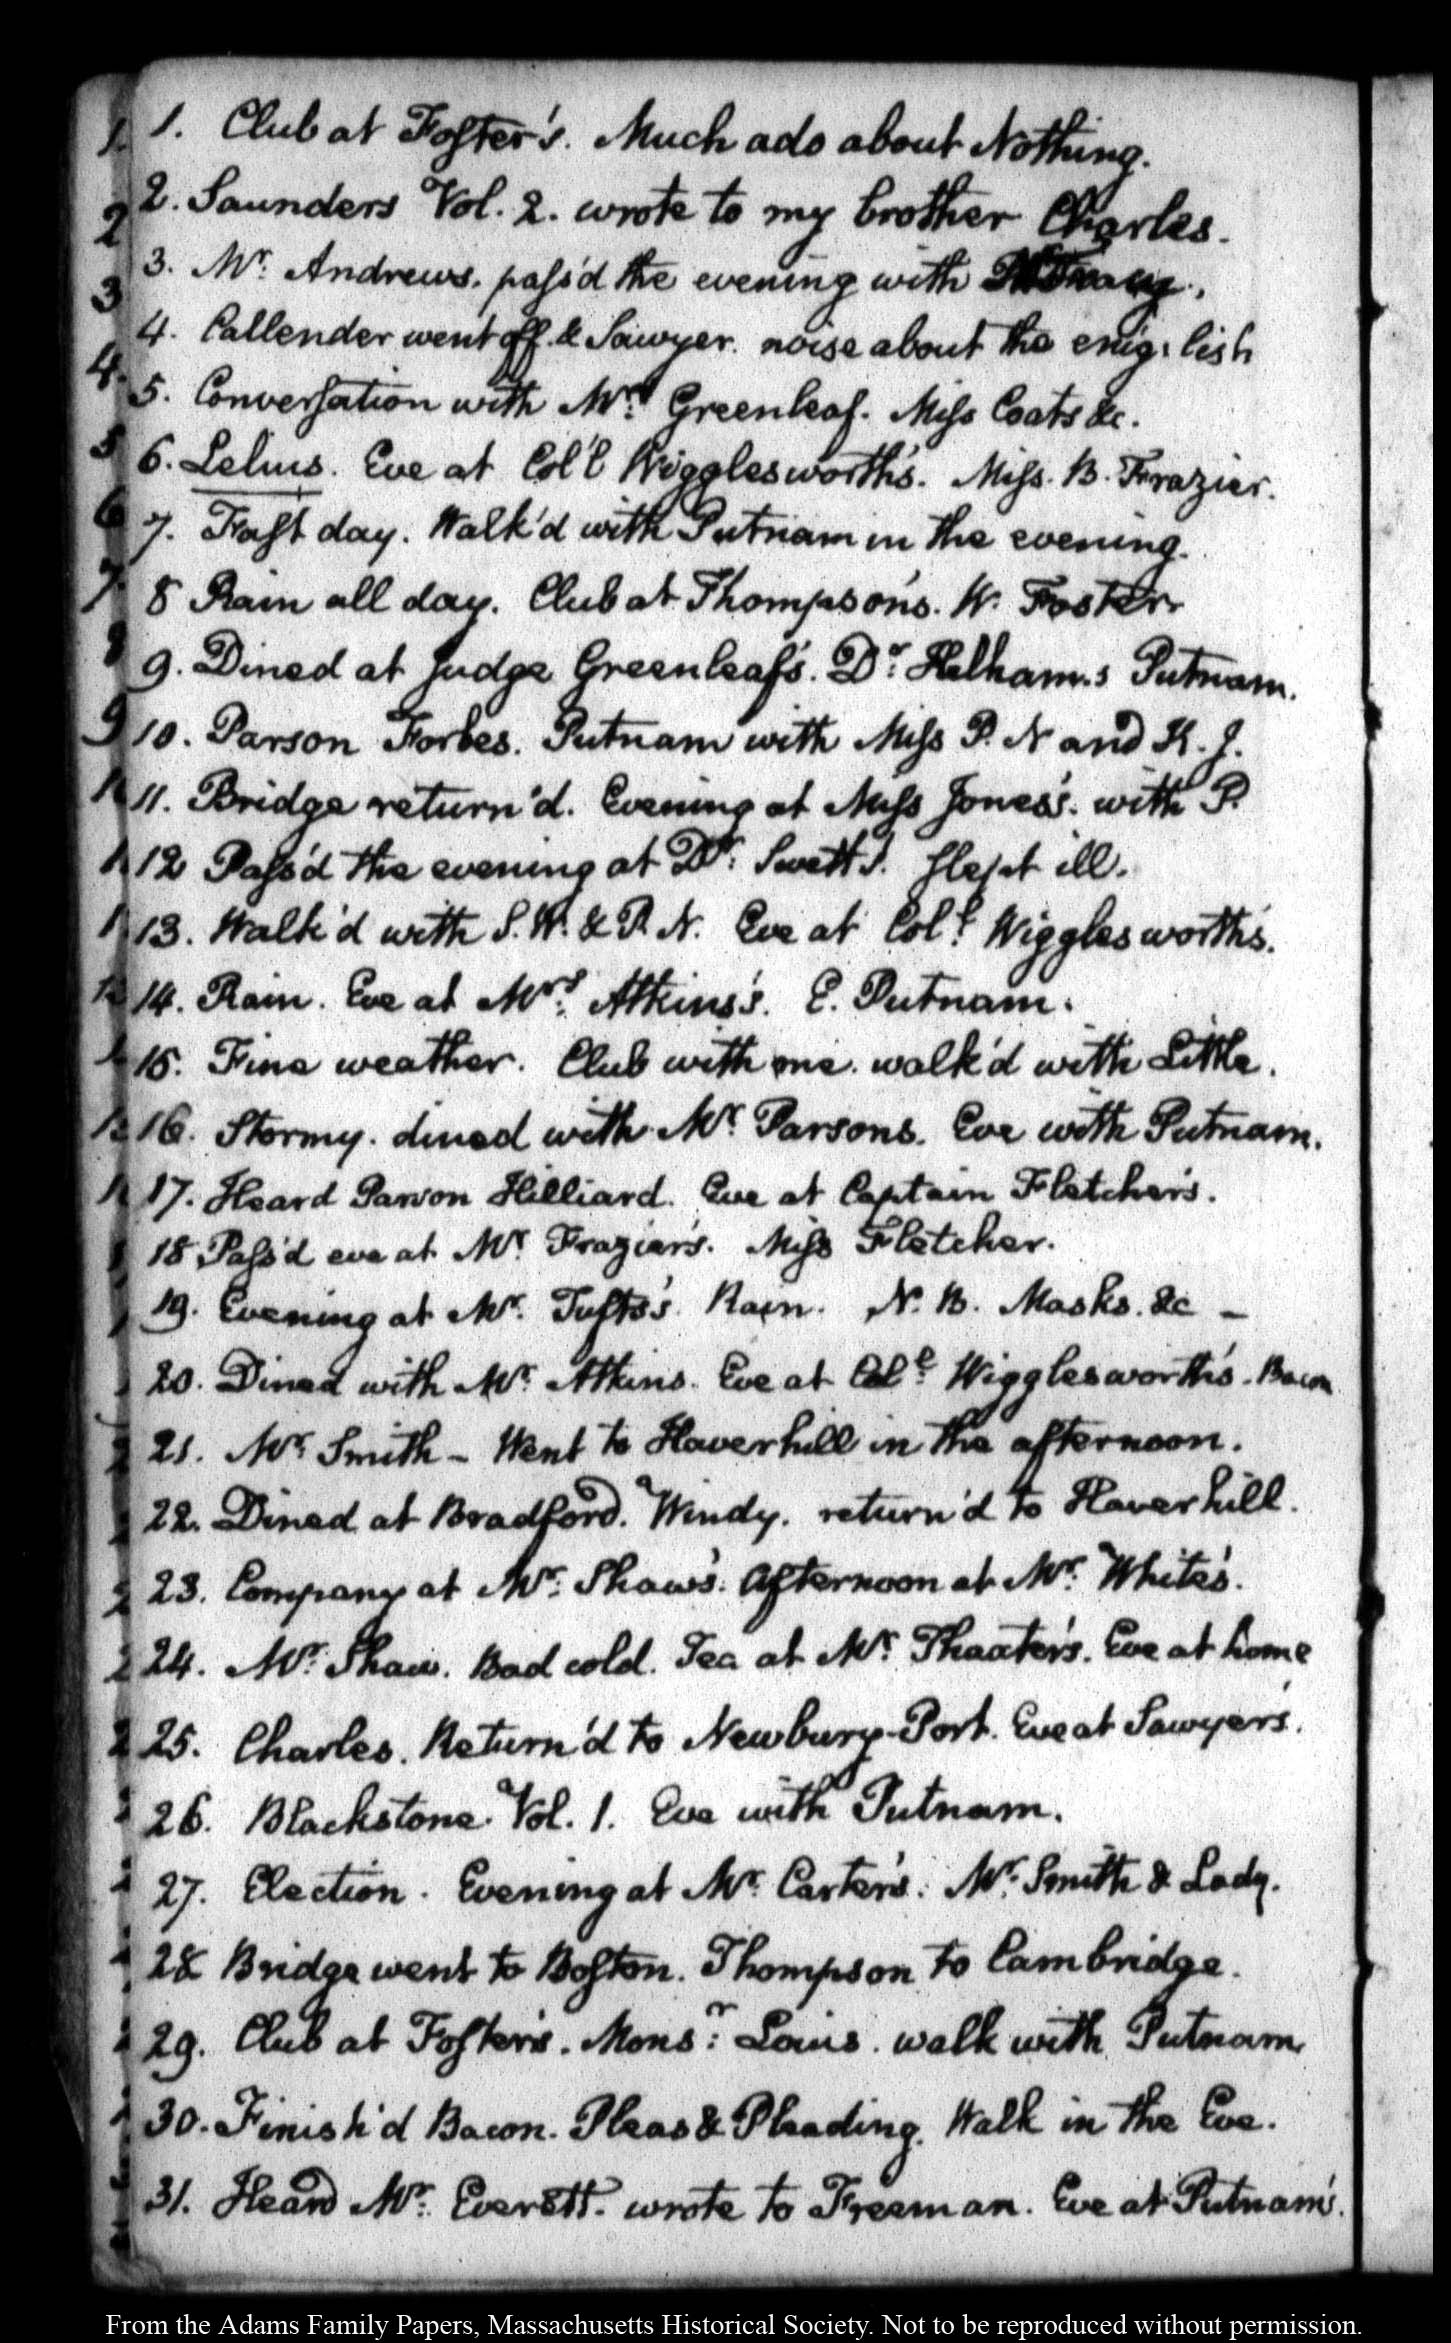 1. Club at Foster's. Much ado about Nothing.
2. Saunders Vol. 2. wrote to my brother Charles.
3. Mr. Andrews. pass'd the evening with
4. Callender went off. & Sawyer. noise about the lish
5. Conversation with Mrs. Greenleaf. Miss Coats &c.
6. Lelius. Eve at Coll Wigglesworth's. Miss. B. Frazier.
7. Fast day. Walk'd with Putnam in the evening.
8 Rain all day. Club at Thompson's. W. Foster
9. Dined at judge Greenleaf's. Dr. Putnam.
10. Parson Forbes. Putnam with Miss P. N and K. J.
11. Bridge return'd. Evening at Miss Jones's. with P.
12 Pass'd the evening at Dr. Swett's. slept ill.
13. Walk'd with S. W. & P. N. Eve at Coll. Wigglesworth's.
14. Rain. Eve at Mrs. Atkins's. E. Putnam.
15. Fine weather. Club with me. walk'd with Little.
16. Stormy. dined with Mr. Parsons. Eve with Putnam.
17. Heard Parson Hilliard. Eve at Captain Fletcher's.
18 Pass'd eve at Mr. Frazier's. Miss Fletcher.
19. Evening at Mr. Tufts's. Rain. N. B. Masks. &c –
20. Dined with Mr. Atkins. Eve at Coll. Wigglesworth's. Bacon
21. Mr. Smith – Went to Haverhill in the afternoon.
22. Dined at Bradford. Windy. return'd to Haverhill.
23. Company at Mr. Shaw's. Afternoon at Mr. White's.
24. Mr. Shaw. Bad cold. Tea at Mr. Thaxter's. Eve at home
25. Charles. Return'd to Newbury-Port. Eve at Sawyer's.
26. Blackstone. Vol. 1. Eve with Putnam.
27. Election. Evening at Mr. Carter's. Mr. Smith & Lady.
28 Bridge went to Boston. Thompson to Cambridge.
29. Club at Foster's. Monsr. Louis. walk with Putnam
30. Finish'd Bacon. Pleas & Pleading. Walk in the Eve.
31. Heard Mr. Everett. wrote to Freeman. Eve at Putnam's.
From the Adams Family Papers, Massachusetts Historical Society. Not to be reproduced without permission.